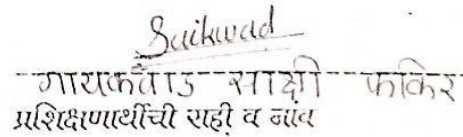 Gaikwad
गायकवाड साक्षी फकिर
प्रशिक्षणार्थीची सही व नांव